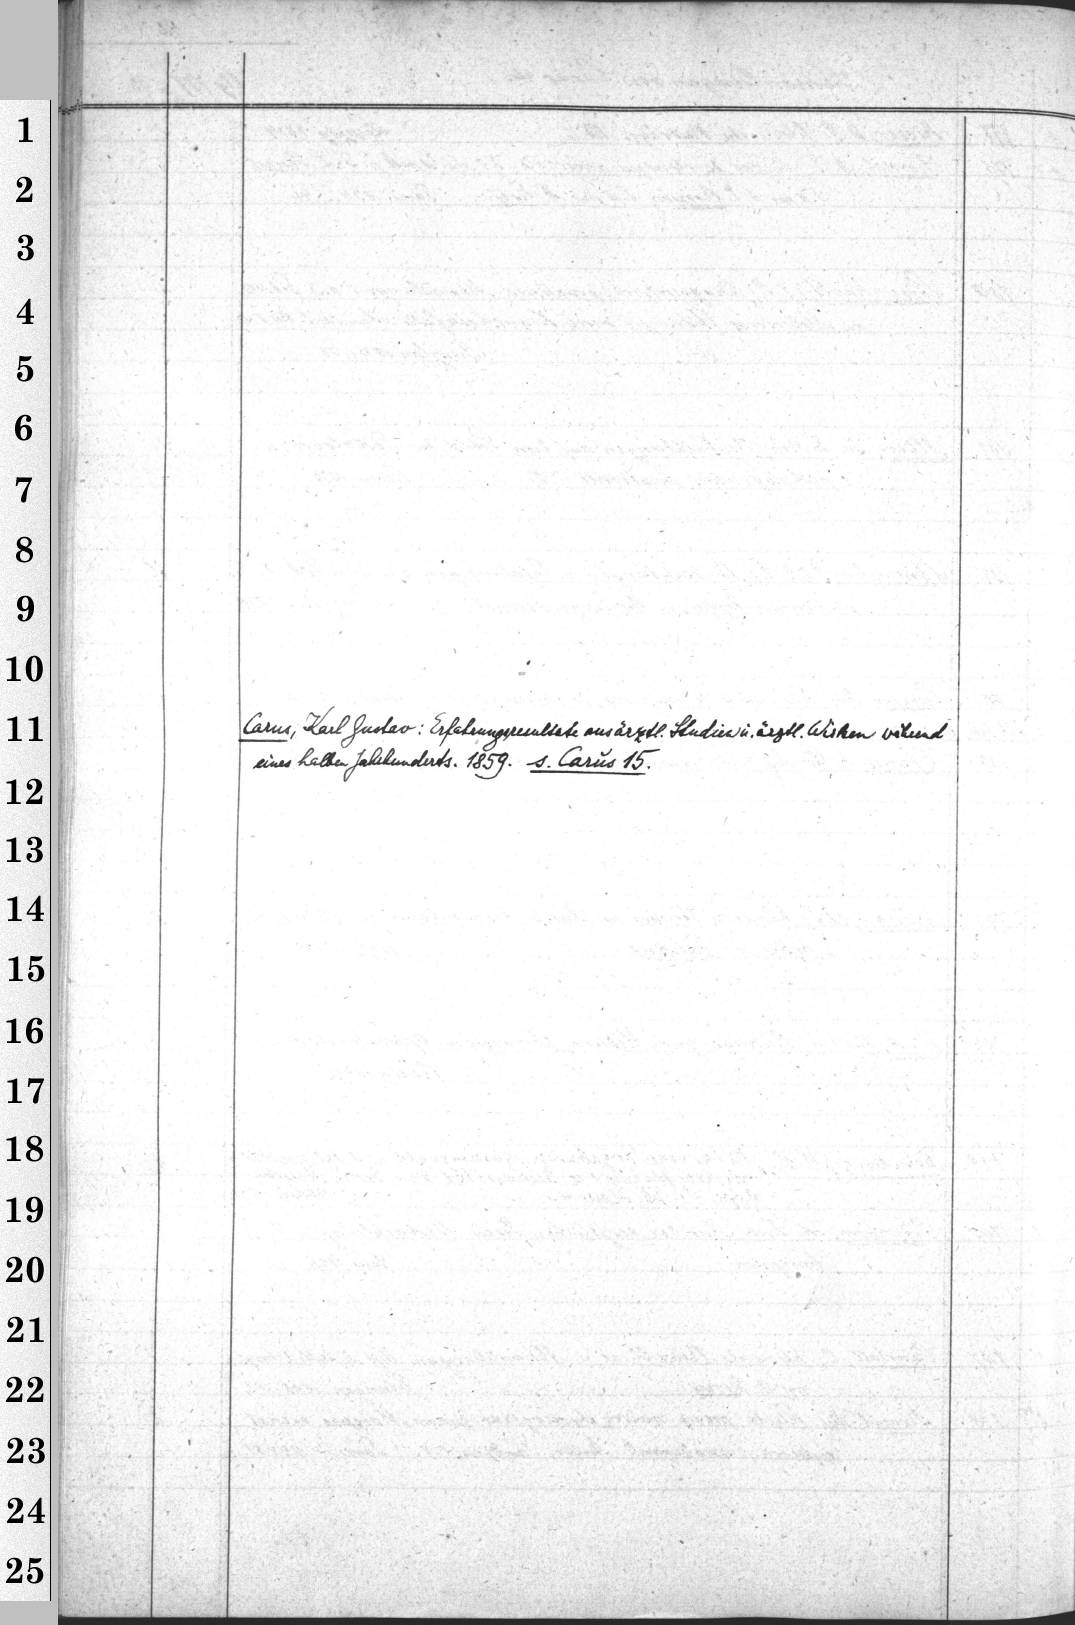 1
2
3
4
5
6
7
8
9
10
11
Carus, Karl Gustav: Erfahrungsresultate aus ärztl. Studien u. ärztl. Wirken während
eines halben Jahrhunderts. 1859. s. Carus 15.
12
13
14
15
16
17
18
19
20
21
22
23
24
25